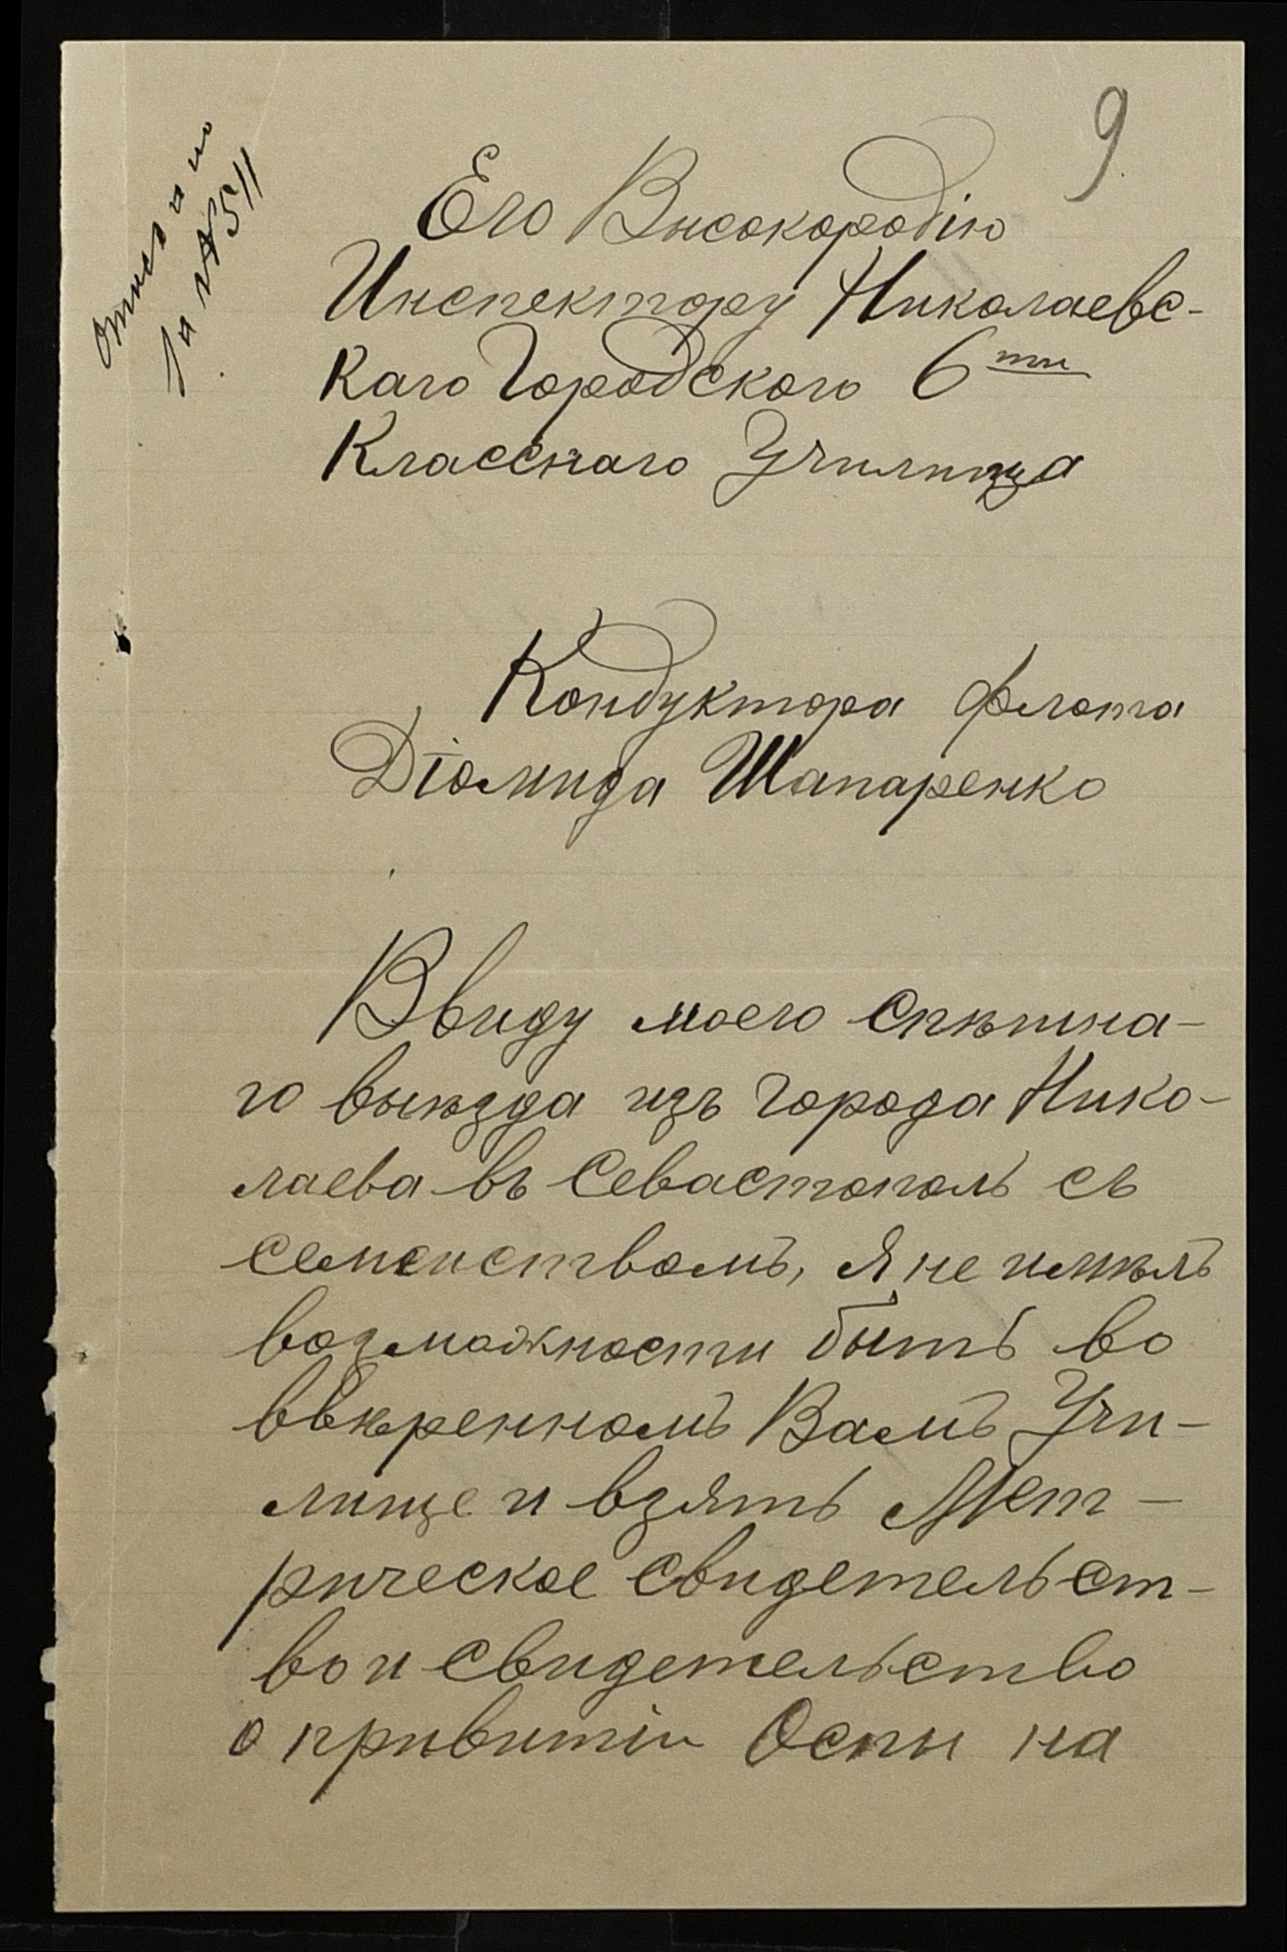 9
Отписано
за № 511
Его Высокородію
Инспектору Николаевс-
каго Городского 6ти
Класснаго Училища
Кондуктора флота
Діомида Шапаренко
Ввиду моего спѣшна-
го выѣзда изъ города Нико-
лаева въ Севастополь съ
семеиствомъ, я не имѣлъ
возможности быть во
ввѣренномъ Вамъ Учи-
лище и взять Мет-
рическое свидетельст-
во и свидетельство
о привитіи Оспы на